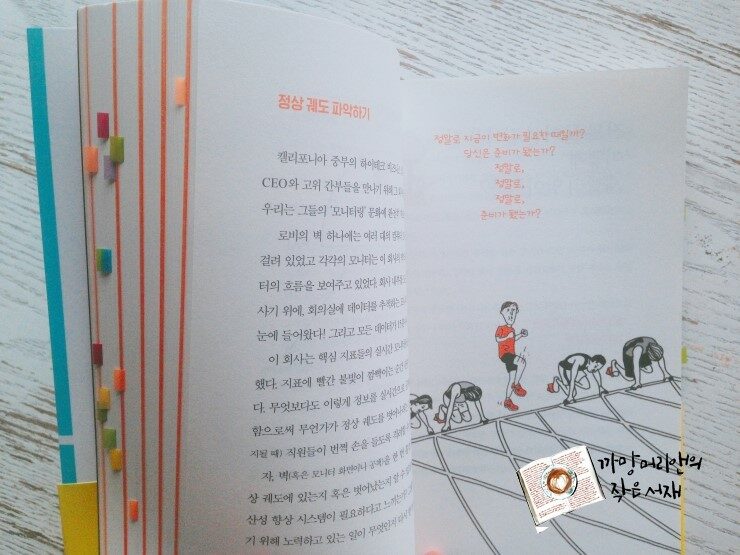 정상 궤도 파악하기
캘리포니아 중부의 하이테크
CEO와 고위 간부들을 만나기 위해
우리는 그들의 '모니터링' 문화에
로비의 벽 하나에는 여러 대의
걸려 있었고 각각의 모니터는 이 회사의
터의 흐름을 보여주고 있었다. 회사 내부
사기 위에, 회의실에 데이터를 추적하는
눈에 들어왔다! 그리고 모든 데이터가
이 회사는 핵심 지표들의 실시간
했다. 지표에 빨간 불빛이 깜빡이는 순간
다. 무엇보다도 이렇게 정보를 실시간으로
함으로써 무언가가 정상 궤도를 벗어나
지될 때) 직원들이 번쩍 손을 들도록
자, 벽(혹은 모니터 화면이나 공책)을 한 번
상 궤도에 있는지 혹은 벗어났는지 알 수
산성 향상 시스템이 필요하다고 느끼는가?
기 위해 노력하고 있는 일이 무엇인지
정말로 지금이 변화가 필요한 때일까?
당신은 준비가 됐는가?
정말로,
정말로,
정말로,
준비가 됐는가?
까망머리앤의
작은서재